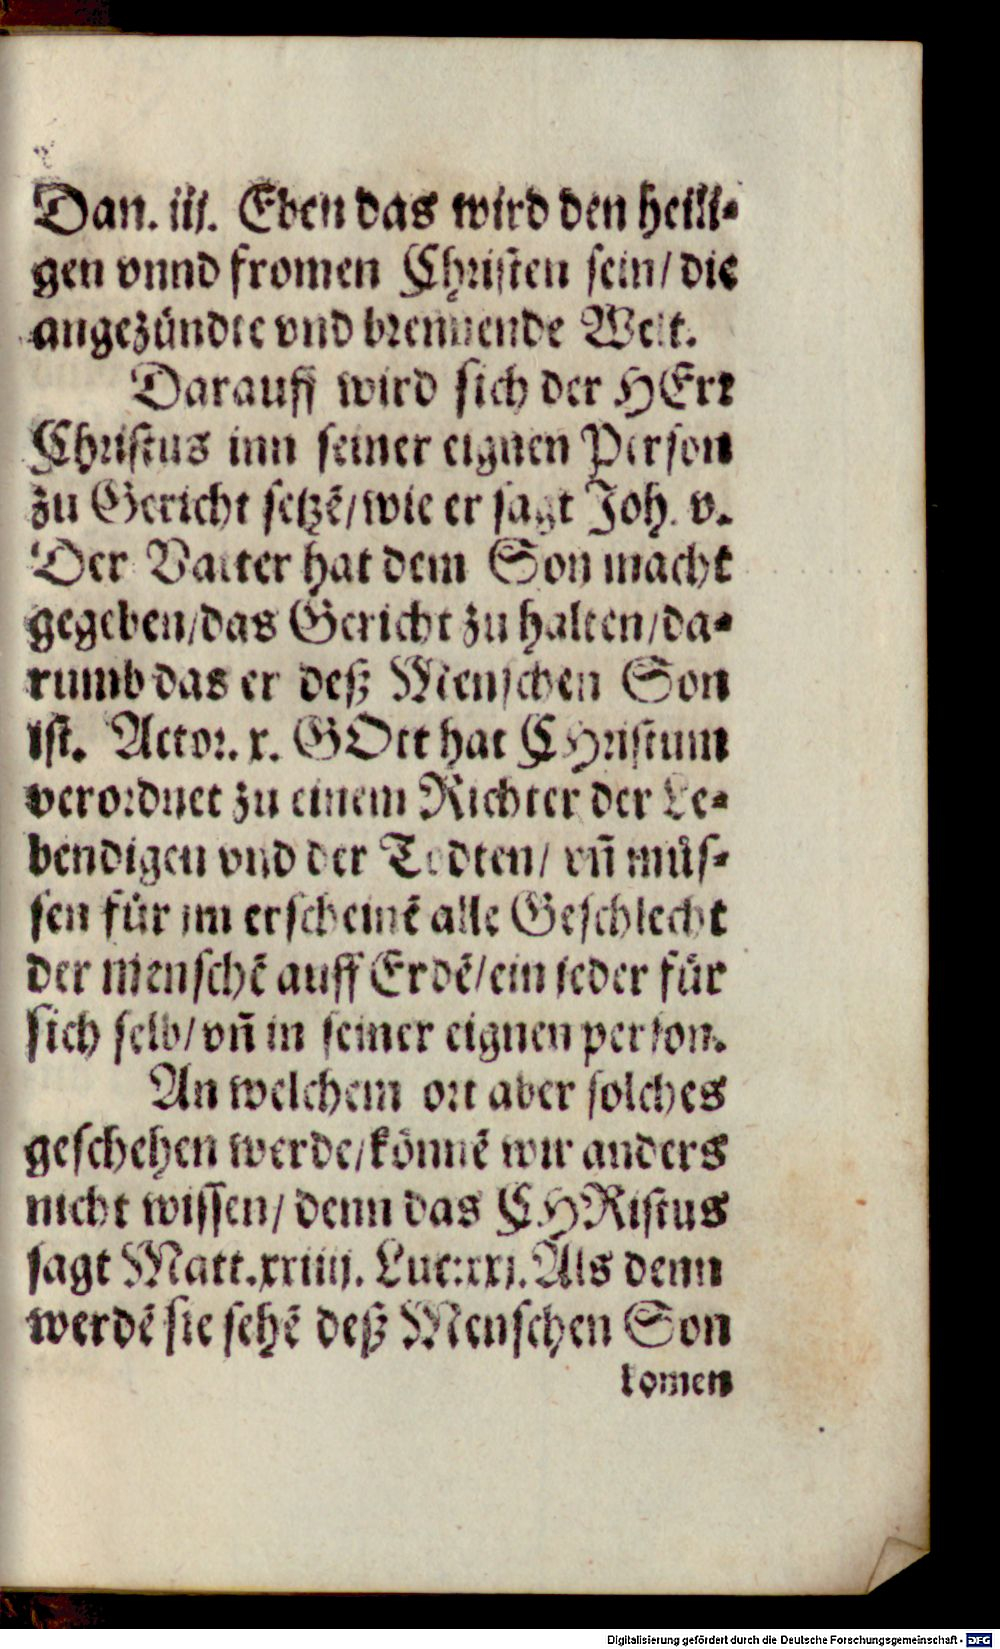 Dan. iij. Eben das wird den heili-
gen vnnd fromen Christen sein/ die
angezündte vnd brennende Welt.
Darauff wird sich der HErr
Christus inn seiner eignen Person
zu Gericht setzẽ/ wie er sagt Joh. v.
Der Vatter hat dem Son macht
gegeben/ das Gericht zu halten/ da-
rumb das er deß Menschen Son
ist. Actor. x. GOtt hat CHristum
verordnet zu einem Richter der Le-
bendigen vnd der Todten/ vñ müs-
sen für jm erscheinẽ alle Geschlecht
der menschẽ auff Erdẽ/ ein jeder für
sich selb/ vñ in seiner eignen person.
An welchem ort aber solches
geschehen werde/ könnẽ wir anders
nicht wissen/ denn das CHRistus
sagt Matt. xxiiij. Luc: xxj. Als denn
werdẽ sie sehẽ deß Menschen Son
komen
Digitalisierung gefördert durch die Deutsche Forschungsgemeinschaft - DFG